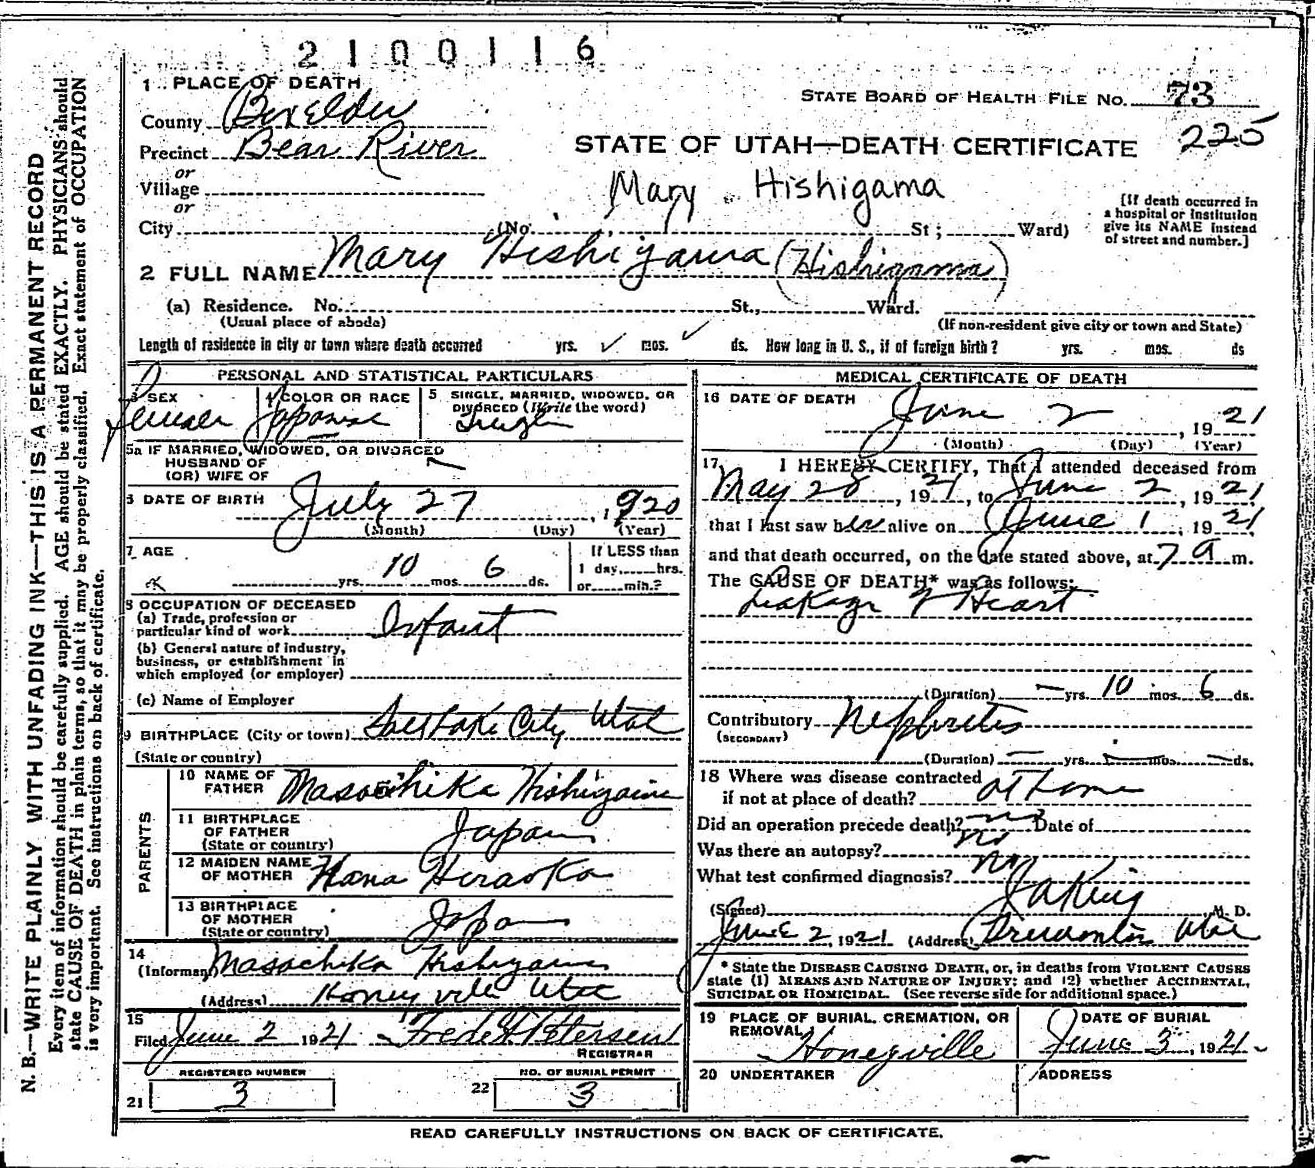 2100116
1 PLACE OF DEATH
County Boxelder
Precinct Bear River
or
Village
or
City (No. St; Ward)
STATE BOARD OF HEALTH FILE NO. 73
225
STATE OF UTAH—DEATH CERTIFICATE
Mary Hishigama
[If death occurred in
a hospital or institution
give its NAME instead
of street and number.]
2 FULL NAME Mary Hishigama (Hishigama)
(a) Residence. No. St., Ward.
(Usual place of abode) (If non-resident give city or town and State)
Length of residence in city or town where death occurred yrs. mos. ds. How long in U. S., if of foreign birth? yrs. mos. ds
PERSONAL AND STATISTICAL PARTICULARS
3 SEX
Female
4 COLOR OR RACE
Japanese
5 SINGLE, MARRIED, WIDOWED, OR
DIVORCED (Write the word)
Single
5a IF MARRIED, WIDOWED, OR DIVORCED
HUSBAND OF
(OR) WIFE OF
6 DATE OF BIRTH July 27, 1920
(Month) (Day) (Year)
7 AGE
yrs. 10 mos. 6 ds.
If LESS than
1 day,......hrs.
or......min.?
8 OCCUPATION OF DECEASED
(a) Trade, profession or
particular kind of work Infant
(b) General nature of industry,
business, or establishment in
which employed (or employer)
(c) Name of Employer
9 BIRTHPLACE (City or town) Salt Lake City Utah
(State or country)
PARENTS
10 NAME OF
FATHER Masachika Hishigama
11 BIRTHPLACE
OF FATHER
(State or country) Japan
12 MAIDEN NAME
OF MOTHER Hana Hiraoka
13 BIRTHPLACE
OF MOTHER
(State or country) Japan
14
(Informant) Masachika Hishigama
(Address) Honeyville Utah
15
Filed June 2 1921 Fred H. Petersen
REGISTRAR
REGISTERED NUMBER
21 3
NO. OF BURIAL PERMIT
22 3
MEDICAL CERTIFICATE OF DEATH
16 DATE OF DEATH
June 2, 1921
(Month) (Day) (Year)
17 I HEREBY CERTIFY, That I attended deceased from
May 28, 1921, to June 2, 1921
that I last saw her alive on June 1, 1921,
and that death occurred, on the date stated above, at 7 a m.
The CAUSE OF DEATH* was as follows:
Leakage of Heart
(Duration) — yrs. 10 mos. 6 ds.
Contributory Nephritis
(SECONDARY)
(Duration) — yrs. — mos. — ds.
18 Where was disease contracted
if not at place of death? at home
Did an operation precede death? no Date of
Was there an autopsy? no
What test confirmed diagnosis? no
(Signed) M. D.
June 2, 1921 (Address) Tremonton Utah
* State the DISEASE CAUSING DEATH, or, in deaths from VIOLENT CAUSES
state (1) MEANS AND NATURE OF INJURY; and (2) whether ACCIDENTAL,
SUICIDAL OR HOMICIDAL. (See reverse side for additional space.)
19 PLACE OF BURIAL, CREMATION, OR
REMOVAL
Honeyville
DATE OF BURIAL
June 3, 1921
20 UNDERTAKER
ADDRESS
READ CAREFULLY INSTRUCTIONS ON BACK OF CERTIFICATE.
N. B.—WRITE PLAINLY WITH UNFADING INK—THIS IS A PERMANENT RECORD
Every item of information should be carefully supplied. AGE should be stated EXACTLY. PHYSICIANS should
state CAUSE OF DEATH in plain terms, so that it may be properly classified. Exact statement of OCCUPATION
is very important. See instructions on back of certificate.